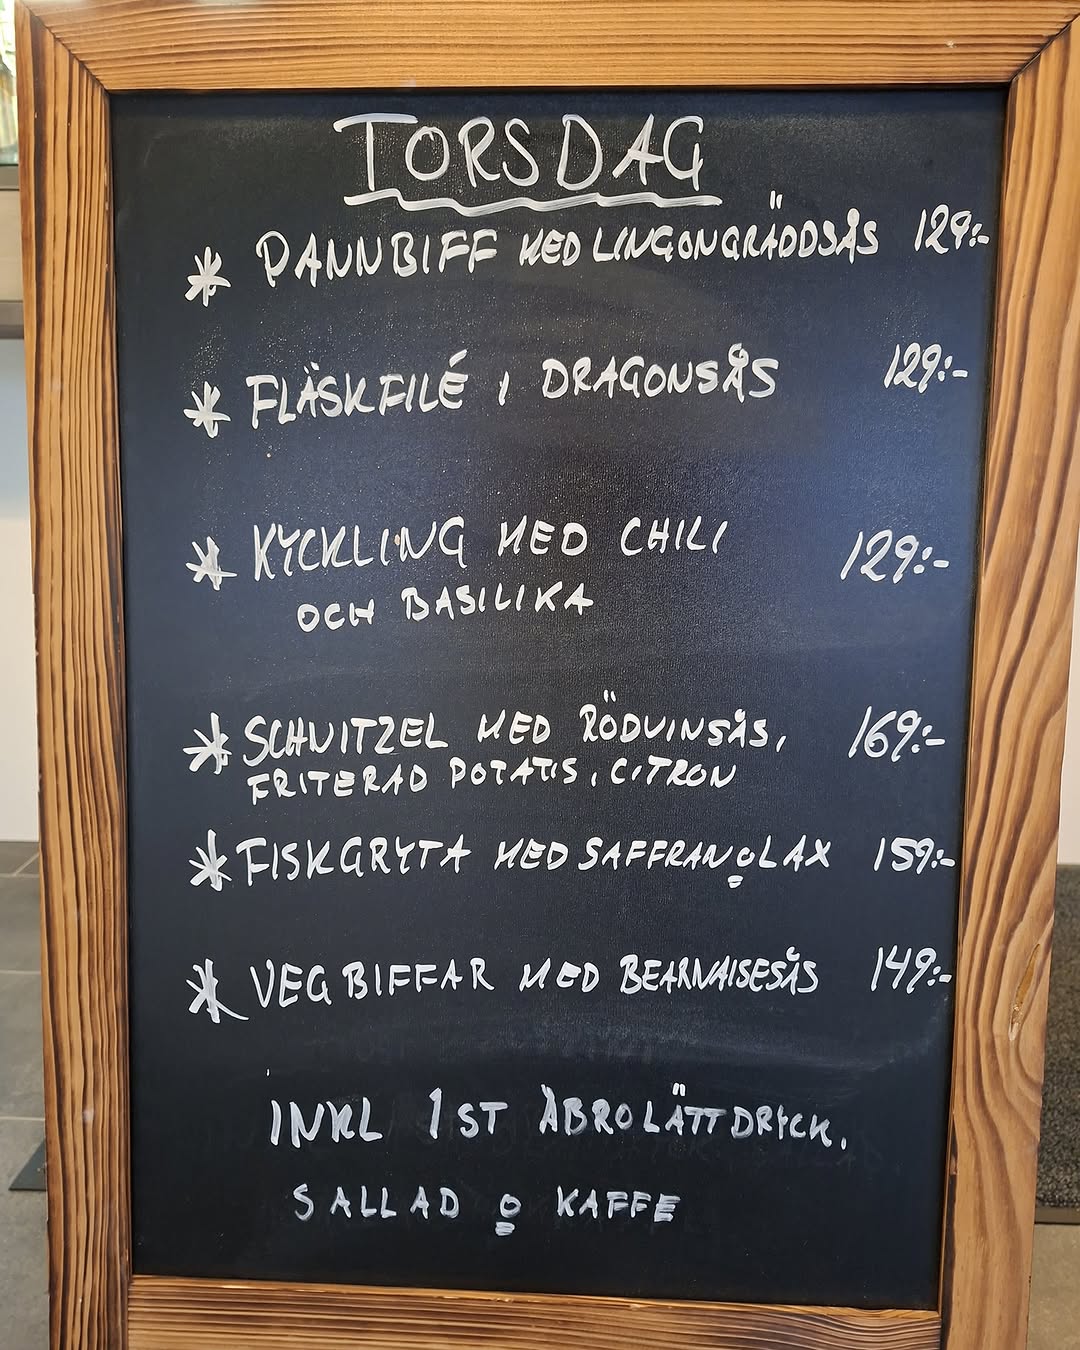 TORSDAG
* PANNBIFF MED LINGONGRÄDDSÅS 129:-
* FLÄSKFILÉ I DRAGONSÅS 129:-
* KYCKLING MED CHILI 129:-
OCH BASILIKA
* SCHNITZEL MED RÖDVINSÅS, 169:-
FRITERAD POTATIS, CITRON
* FISKGRYTA MED SAFFRAN o LAX 159:-
* VEG BIFFAR MED BEARNAISESÅS 149:-
INKL 1 ST ÅBRO LÄTTDRYCK,
SALLAD o KAFFE